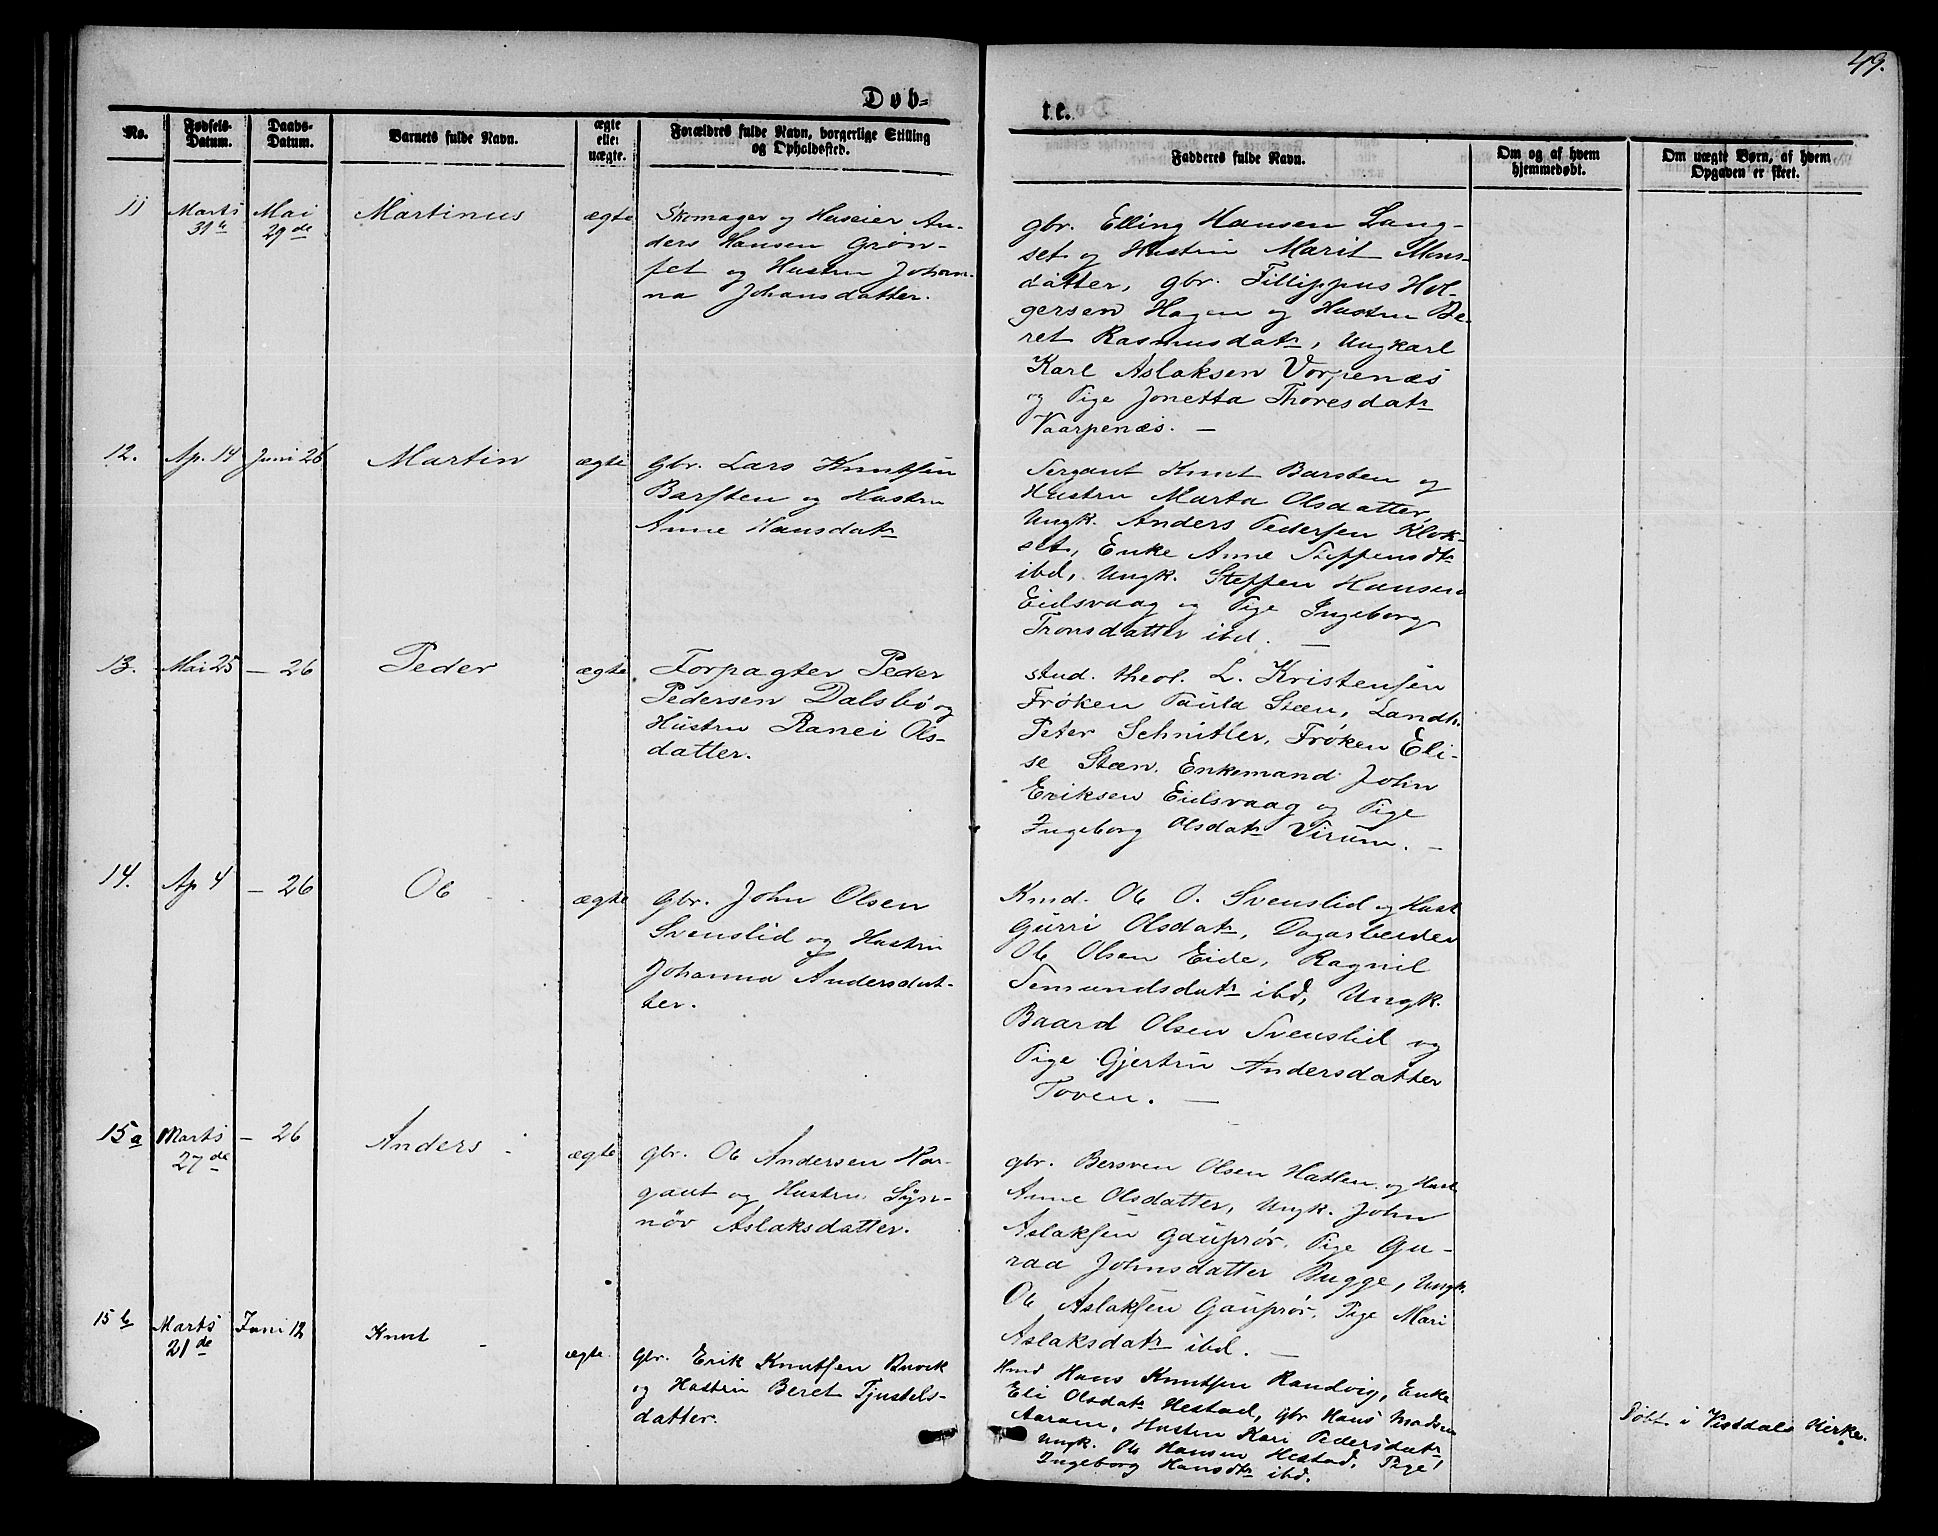 49.
Døb=
te.
No.
Fødsels-
Datum.
Daabs-
Datum.
Barnets fulde Navn.
ægte
eller
uægte.
Forældres fulde Navn, borgerlige Stilling
og Opholdssted.
Fadderes fulde Navn.
Om og af hvem
hjemmedøbt.
Om uægte Børn, af hvem
Opgaven er skeet.
11
Marts
31te
Mai
29de
Martinus
ægte
Skomager og Huseier An-
ders Hansen Grøn-
set og Hustru Johan-
na Johansdatter.
gbr. Elling Hansen Lang-
set og Hustru Marit Mons-
datter, gbr. Fillippus Hol-
gersen Hagen og Hustru Be-
ret Rasmusdatr, Ungkarl
Karl Aslaksen Vorpenæs
og Pige Jonetta Thoresdatr
Vaarpenæs. —
12.
Ap. 14
Juni 26
Martin
ægte
Gbr. Lars Knutsen
Barsten og Hustru
Anne Hansdatr
Sergant Knut Barsten og
Hustru Marta Olsdatter,
Ungk. Anders Pedersen Klok-
set, Enke Anne Steffensdtr
ibd, Ungk. Steffen Hansen
Eidsvaag og Pige Ingeborg
Tronsdatter ibd. —
13.
Mai 25
— 26
Peder
ægte
Forpagter Peder
Pedersen Dalsbø og
Hustru Ranei Ols-
datter.
stud. theol. L. Kristensen
Frøken Paula Stæn, Landh.
Peter Schnitler, Frøken Eli-
se Stæn, Enkemand John
Eriksen Eidsvaag og Pige
Ingeborg Olsdatr Virum. —
14.
Ap 4
— 26
Ole
ægte
Gbr. John Olsen
Svenslid og Hustru
Johanna Andersdat-
ter.
Kmd. Ole O. Svenslid og Hust
Gurri Olsdatr, Dagarbeider
Ole Olsen Eide, Ragnil
Semundsdatr ibd, Ungk.
Baard Olsen Svenslid og
Pige Gjertru Andersdatter
Toven. —
15a
Marts
27de
— 26
Anders
ægte
gbr. Ole Andersen Har-
gaut og Hustru Syn-
nøv Aslaksdatter.
gbr. Bersven Olsen Hatlen og Hust
Anne Olsdatter, Ungk. John
Aslaksen Gauprør, Pige Gu-
raa Johnsdatter Bugge, Ungk.
Ole Aslaksen Gauprør, Pige Mari
Aslaksdatr ibd. —
15b
Marts
21de
Juni 12
Knut
ægte.
Gbr. Erik Knutsen Buvik
og Hustru Beret Tjustels-
datter.
Hmd Hans Knutsen Randvig, Enke
Eli Olsdatr Hestad, Gbr Hans Madsen
Aaram, Hustru Kari Pedersdatr
Ungk. Ole Hansen Hestad, Pige
Ingeborg Hansdtr ibd.
Døbt i Vistdals Kirke.